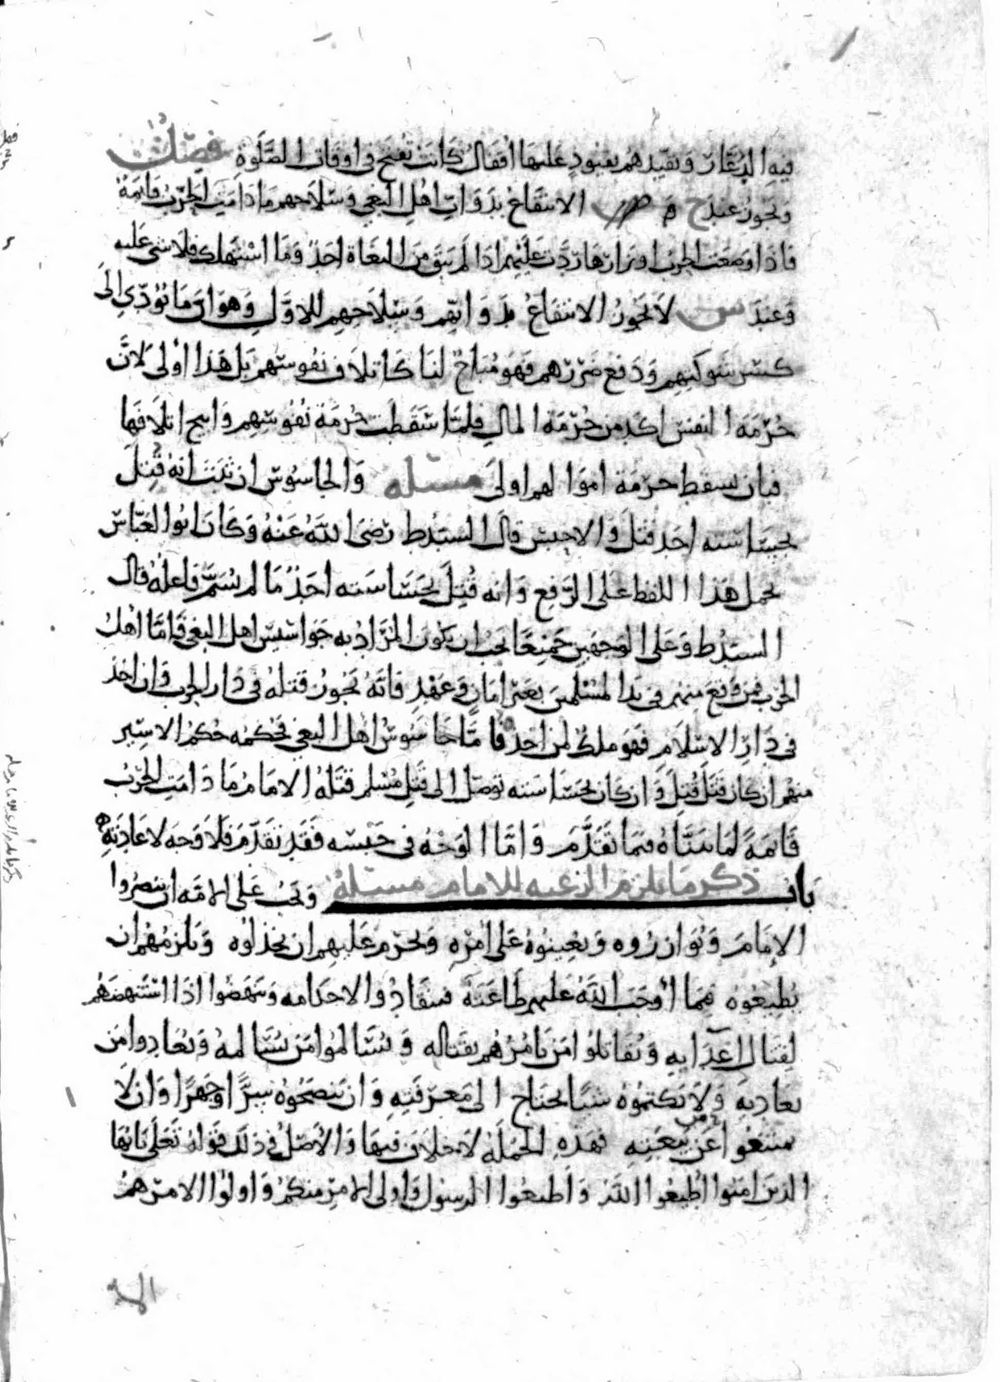 فيه الدعار وتقيدهم بقيود عليها اقفال كانت تفتح في اوقات الصلوة فصل
ويجوز عند ح م الانتفاع بدواب اهل البغي وسلاحهم ما دامت الحرب قايمة
فاذا وضعت الحرب اوزارها ردت عليهم اذا لم يبق من البغاة احد وما استهلك فلا شي عليه
وعند س لا يجوز الانتفاع بدوابهم وسلاحهم للاول وهو ان ما يؤدي الى
كسر شوكتهم ودفع ضررهم فهو مباح لنا كاتلاف نفوسهم بل هذا اولى لان
حرمة النفس اكد من حرمة المال فلما سقطت حرمة نفوسهم وابيح اتلافها
فبان يسقط حرمة اموالهم اولى مسئله والجاسوس ان ثبت انه قتل
بجساسته احد قتل والا حبس قال السيد ط رضي الله عنه وكان ابوا العباس
يحمل هذا اللفظ على الرفع وانه قتل بجساسته احد ما لم يسم فاعله قال
السيد ط وعلى الوجهين جميعا يجب ان يكون المراد به جواسيس اهل البغي فاما اهل
الحرب فمن وقع منهم في يد المسلمين بغير امان وعهد فانه يجوز قتله في دار الحرب وان اخذ
في دار الاسلام فهو ملك لمن اخذه فاما جاسوس اهل البغي فحكمه حكم الاسير
منهم ان كان قتل قتل وان كان بجساسته توصل الى قتل مسلم قتله الامام ما دامت الحرب
قايمة لما بيناه فيما تقدم واما الوجه في حبسه فقد تقدم فلا وجه لاعادته
باب ذكر ما يلزم الرعيه للامام مسئلة ويجب على الامة ان ينصروا
الامام ويوازروه ويعينوه على امره ويحرم عليهم ان يخذلوه ويلزمهم ان
يطيعوه فيما اوجب الله عليهم طاعته فينقادوا لاحكامه وينهضوا اذا استنهضهم
لقتال اعدايه ويقاتلوا من يامرهم بقتاله ويسالموا من سالمه ويعادوا من
يعاديه ولا يكتموه شيا يحتاج الى معرفته وان ينصحوه سرا وجهرا وان لا
يمتنعوا عن بيعته فهذه الجملة لا خلاف فيها والاصل في ذلك قوله تعلى يا ايها
الذين امنوا اطيعوا الله واطيعوا الرسول واولي الامر منكم واولوا الامر هم